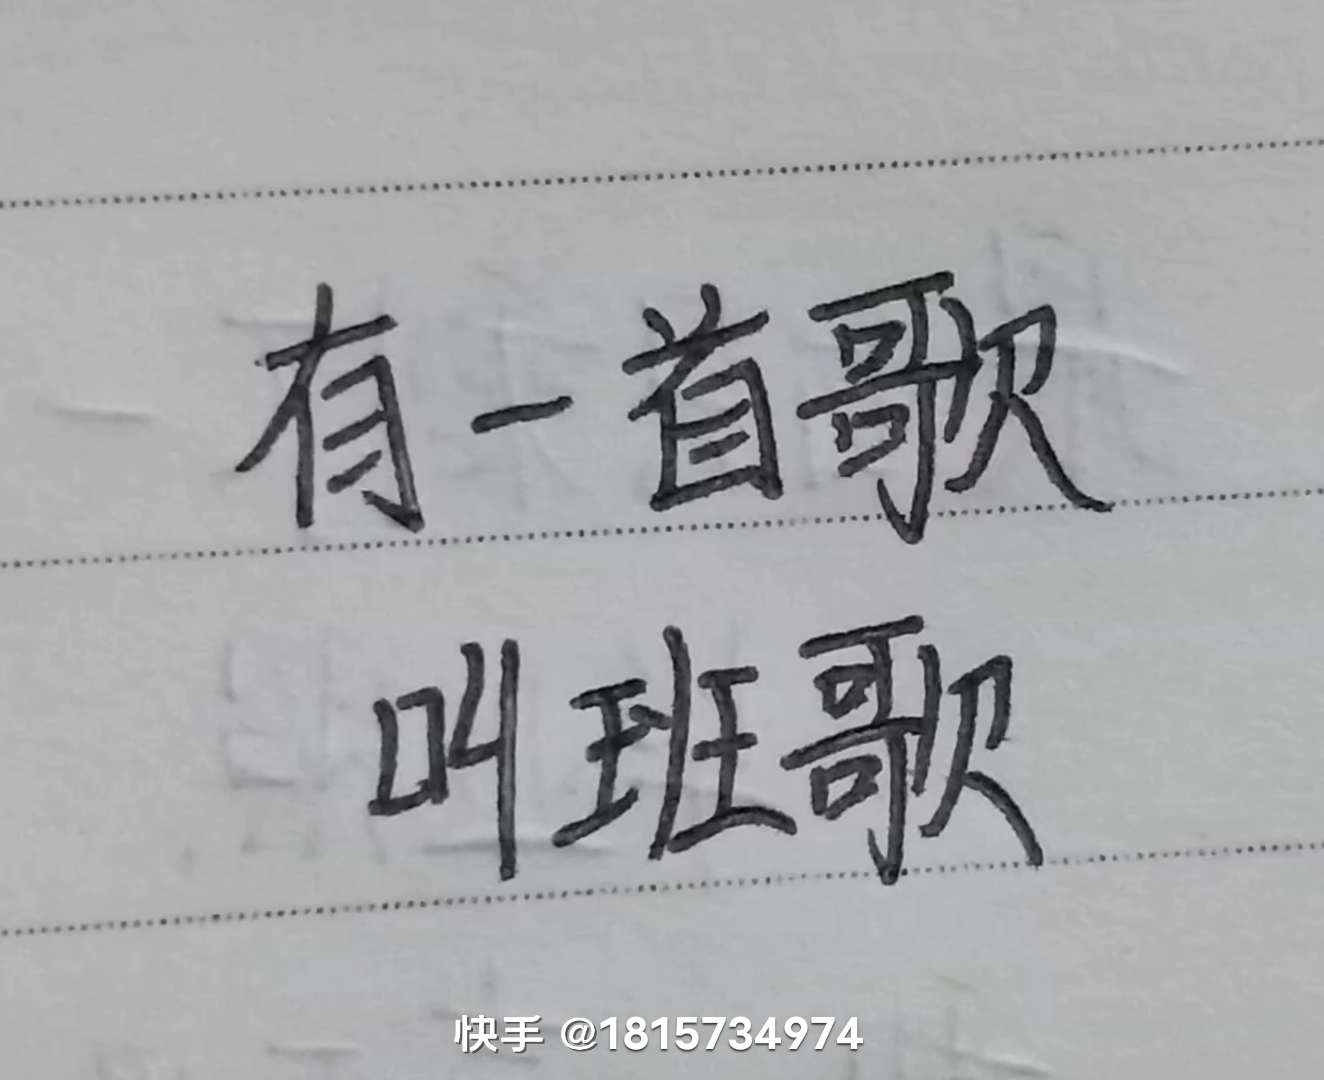 有一首歌
叫班歌
快手 @1815734974